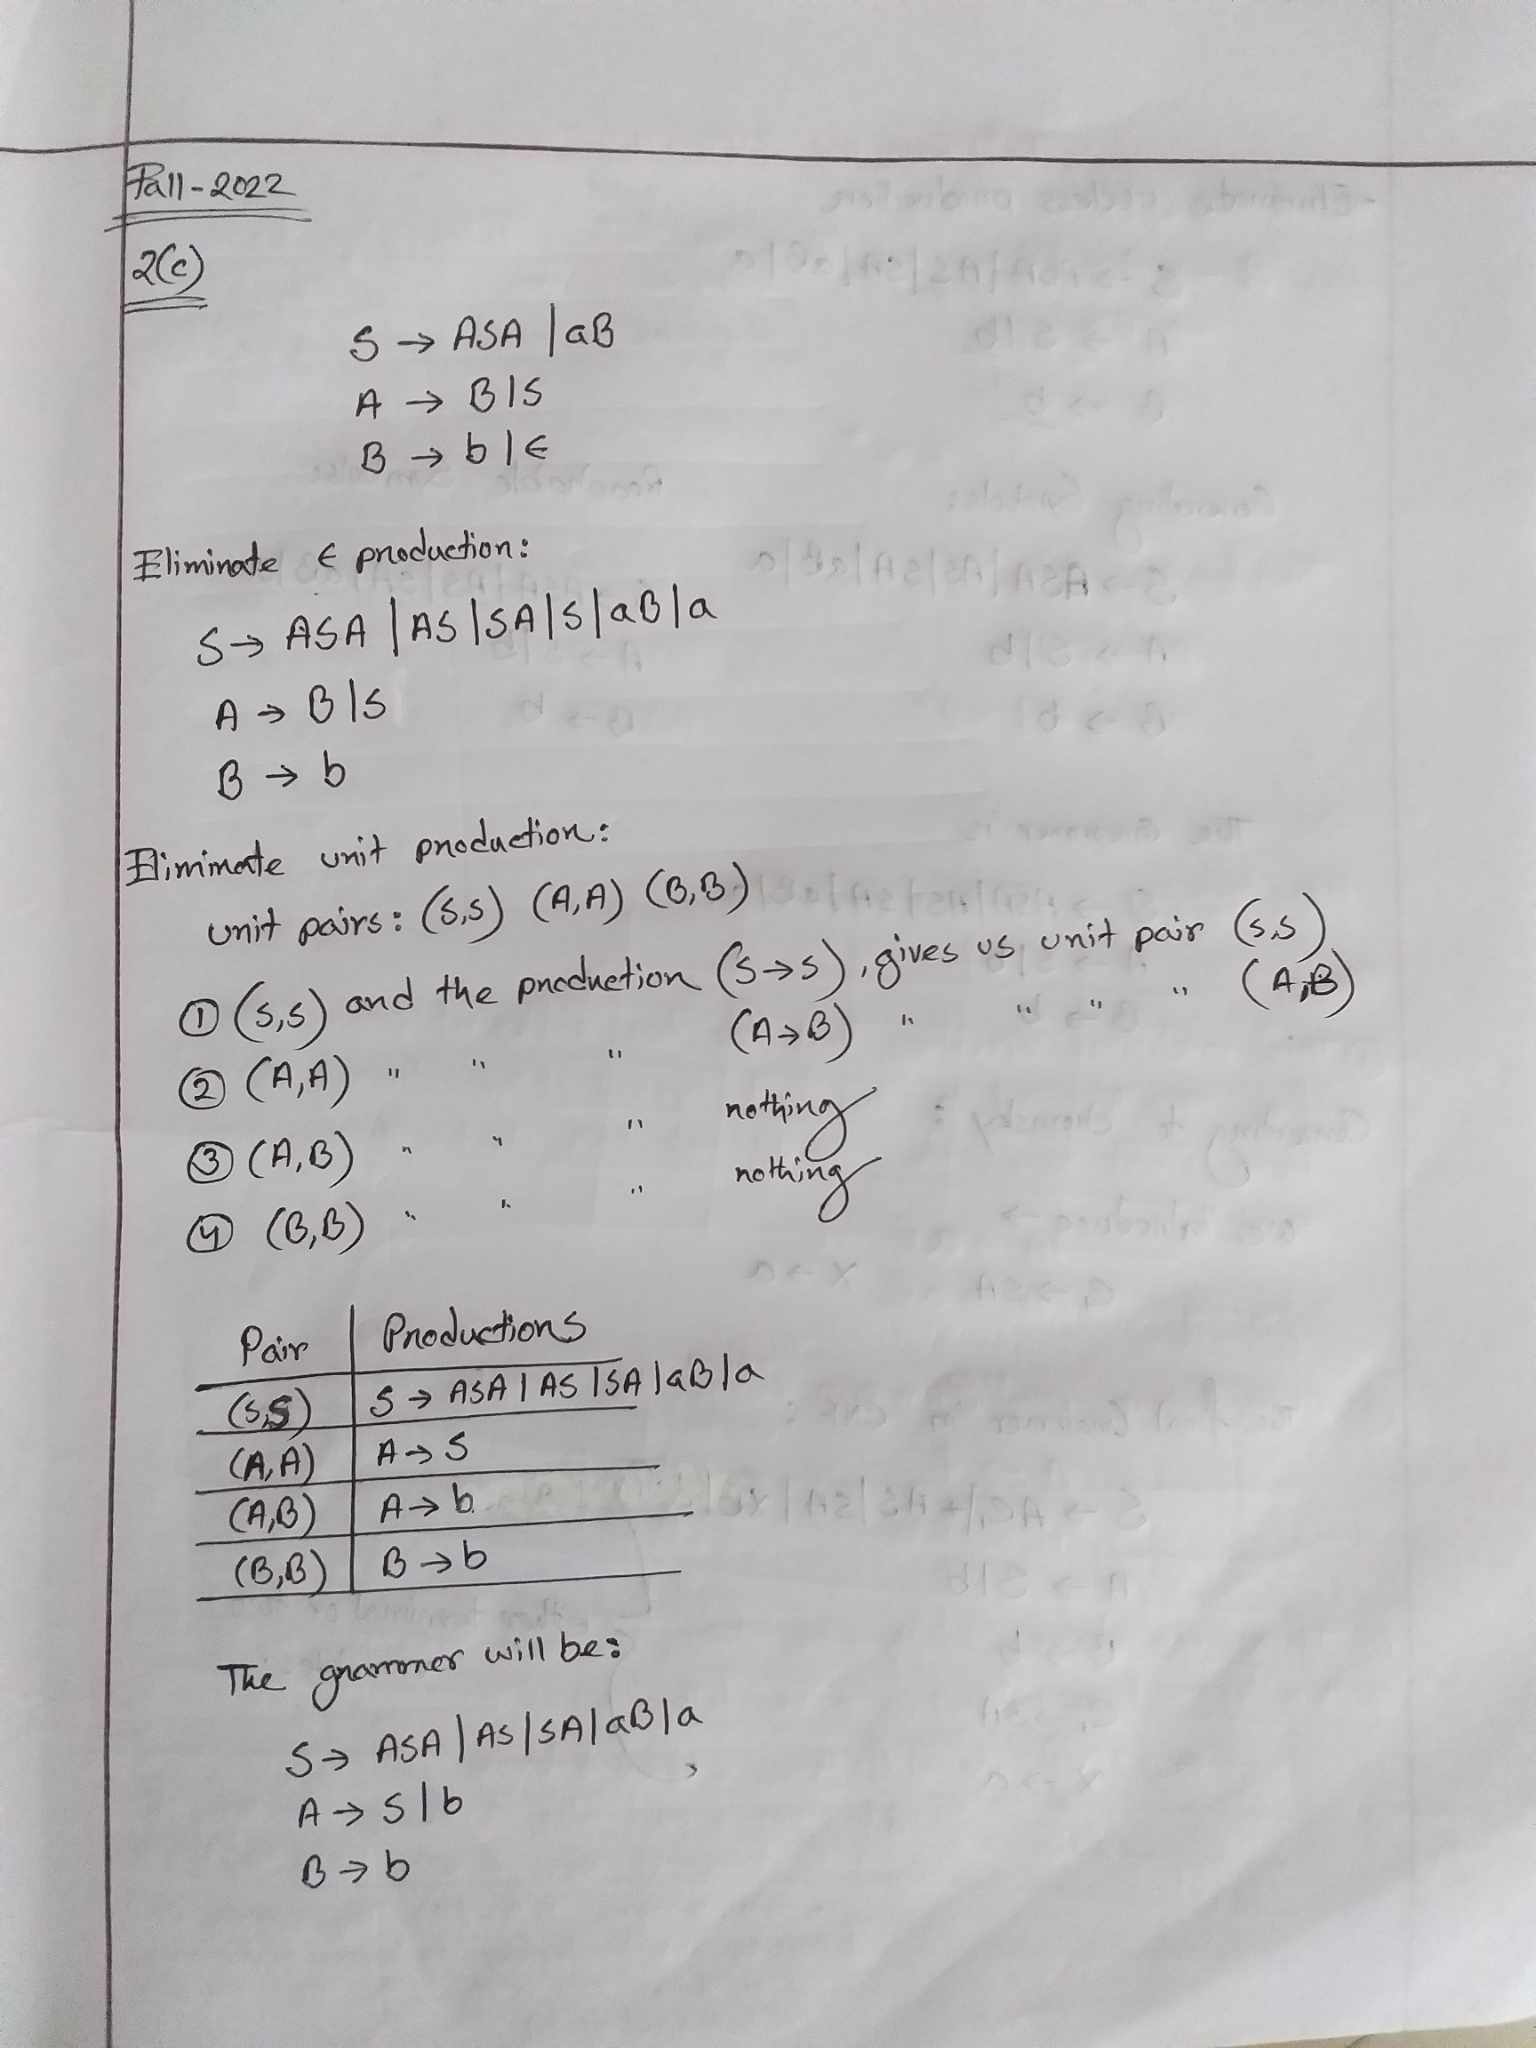 Fall-2022
2(c)
S → ASA | aB
A → B | S
B → b | ϵ
Eliminate ϵ production:
S → ASA | AS | SA | S | aB | a
A → B | S
B → b
Eliminate unit production:
unit pairs: (S,S) (A,A) (B,B)
① (S,S) and the production (S→S), gives us unit pair (S,S)
② (A,A) " " " (A→B) " " " " (A,B)
③ (A,B) " " " nothing
④ (B,B) " " " nothing
Pair | Productions
(S,S) | S → ASA | AS | SA | aB | a
(A,A) | A → S
(A,B) | A → b
(B,B) | B → b
The grammer will be:
S → ASA | AS | SA | aB | a
A → S | b
B → b